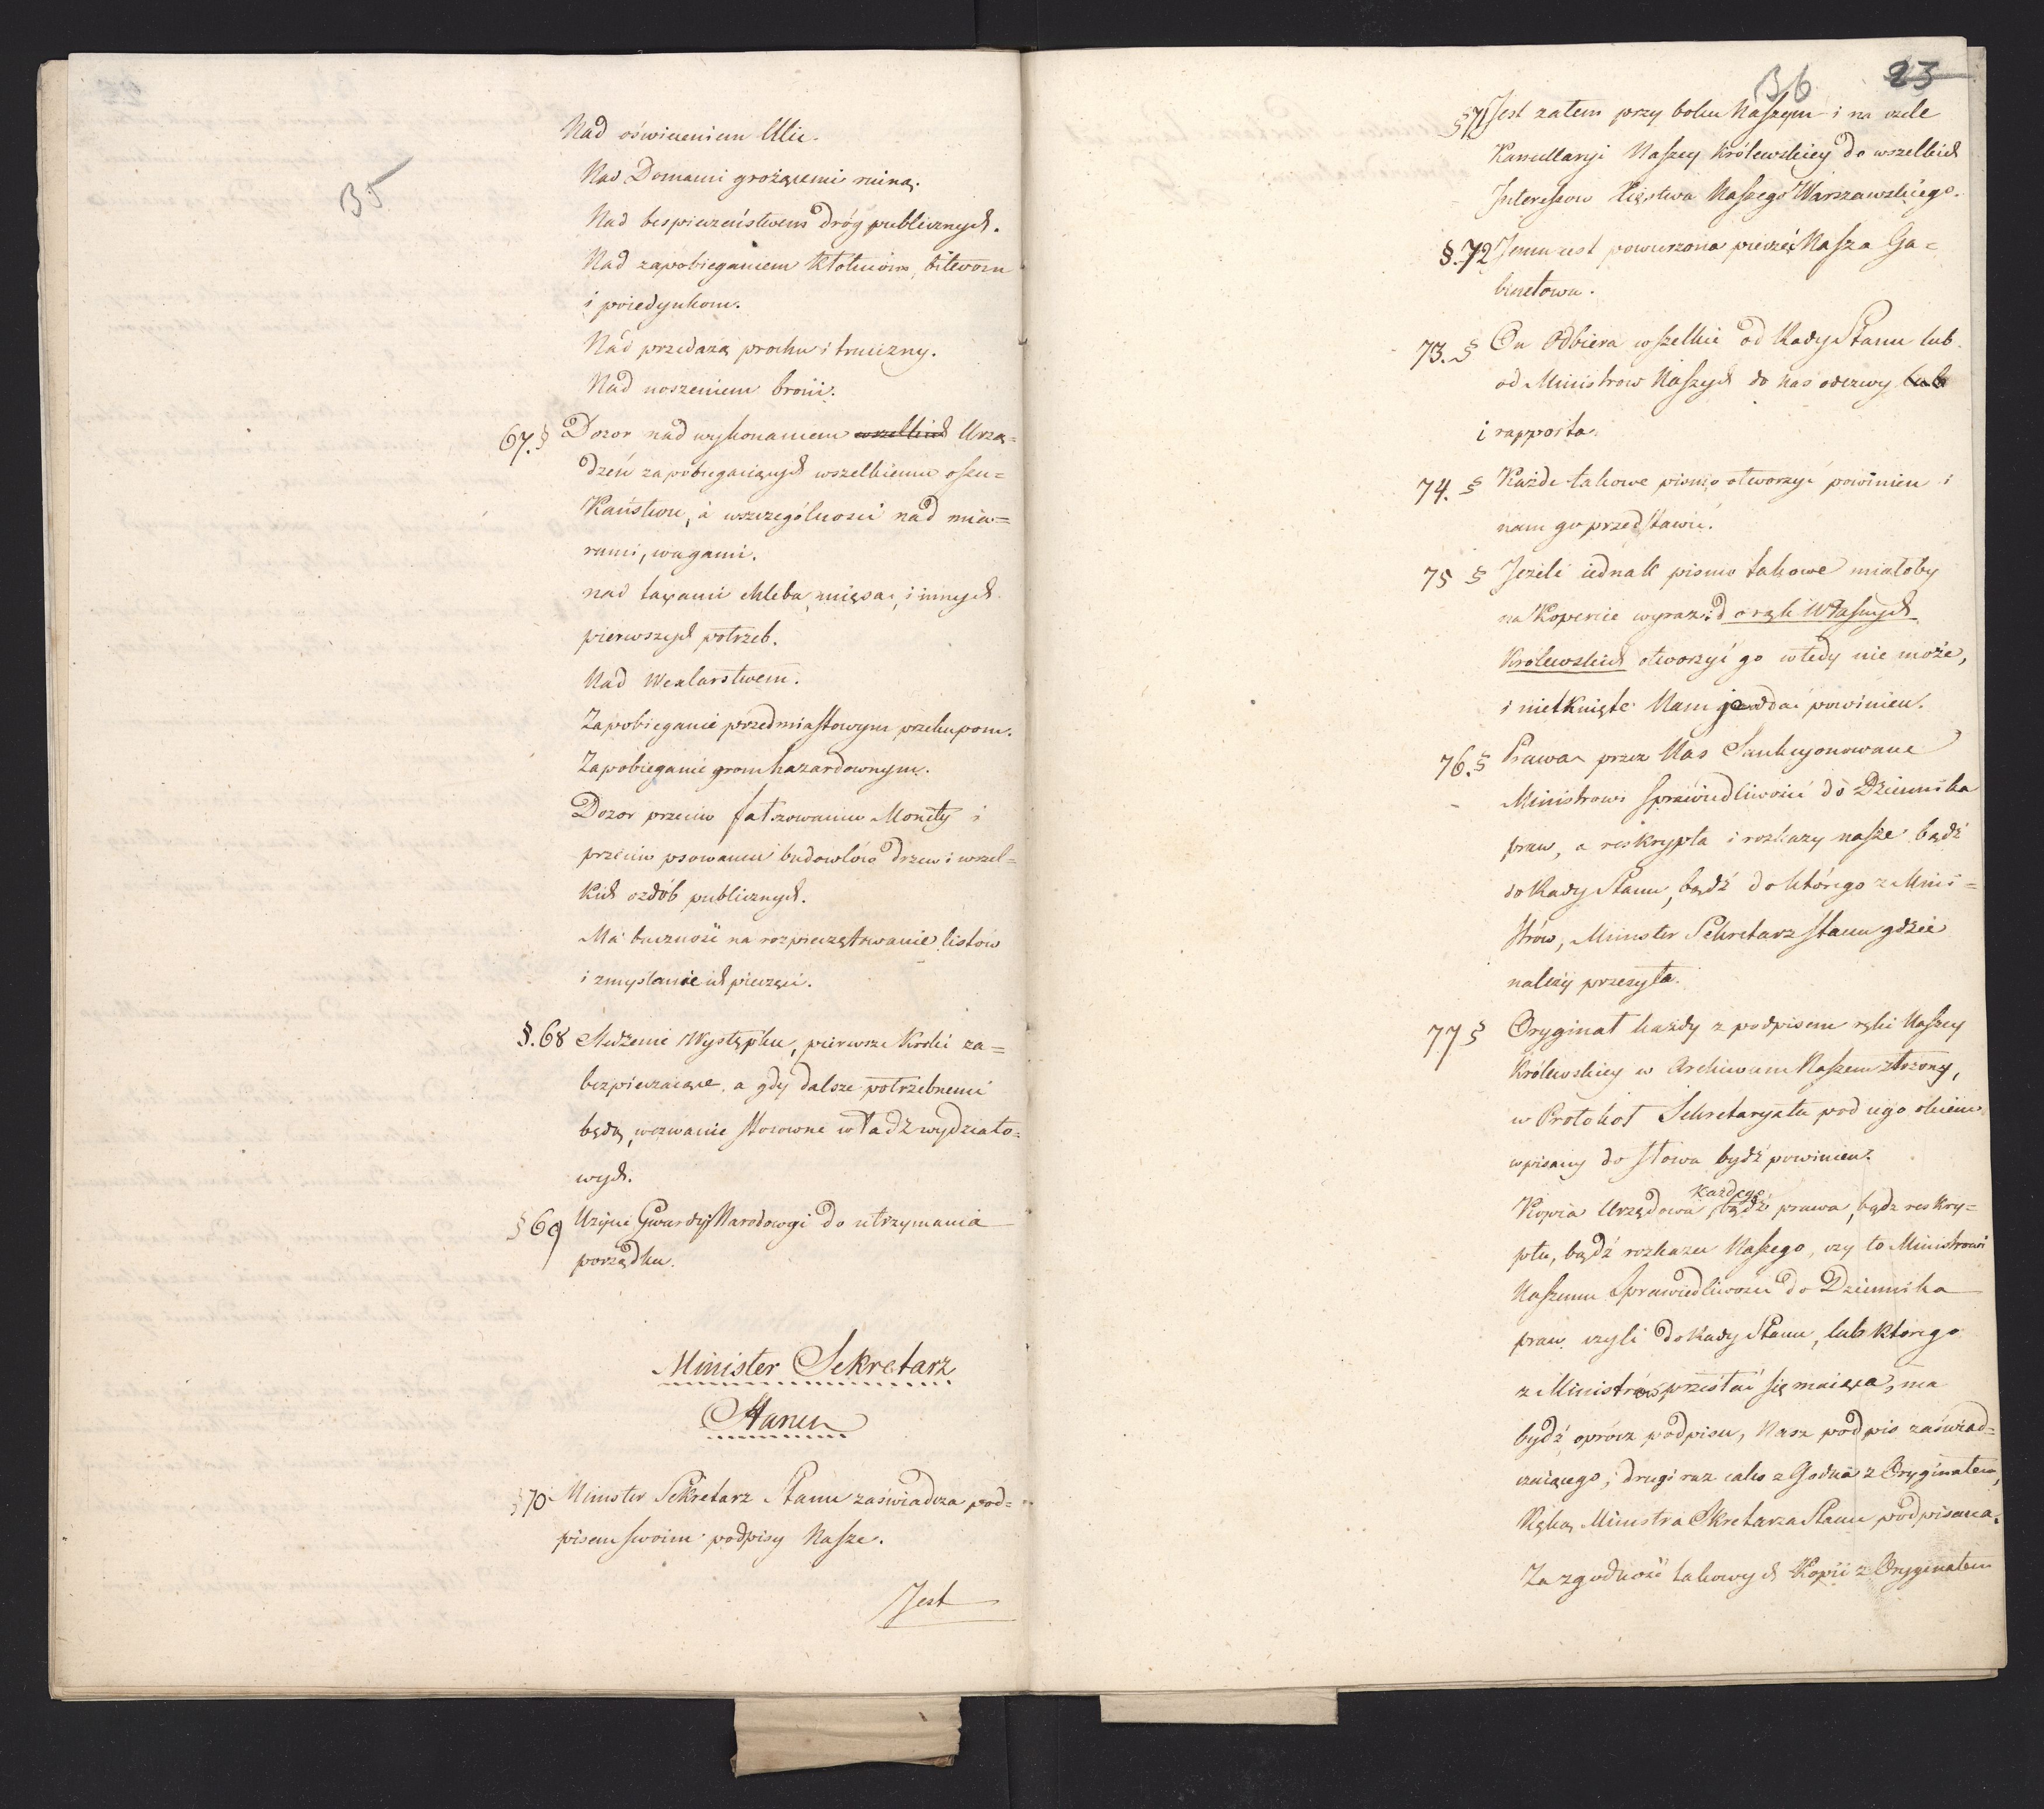 35
Nad oświeceniem Ulic.
Nad Domami grożącemi ruiną.
Nad bespieczeństwem dróg publicznych.
Nad zapobieganiem kłotniom, bitwom
i poiedynkom.
Nad przedażą prochu i trucizny.
Nad noszeniem broni.
67. § Dozor nad wykonaniem wszelkich Urzą=
dzeń zapobiegaiących wszelkiemu oszu=
kaństwu, a wszczególności nad mia=
rami, wagami.
nad taxami chleba, mięsa, i innych
pierwszych potrzeb.
Nad Wexlarstwem.
Zapobieganie przedmiastowym przekupom.
Zapobieganie grom hazardownym.
Dozor przeciw fałszowaniu Monety i
przeciw psowaniu budowlów drzew i wszel=
kich ozdób publicznych.
Ma baczność na rozpieczętowanie listów
i zmyslanie ich pieczęci.
§. 68 Śledzenie Występku, pierwsze kroki za=
bezpieczaiące, a gdy dalsze potrzebnemi
będą, wezwanie stosowne władz wydziało=
wych.
§ 69 Użycie Gwardyi Narodowey do utrzymania
porządku.
Minister Sekretarz
Stanu
§ 70 Minister Sekretarz Stanu zaświadcza pod=
pisem swoim podpisy Nasze.
Jest
36 23
§ 71 Jest zatem przy boku Naszym i na czele
Kancellaryi Naszey Królewskiey do wszelkich
Interessow Xięstwa Naszego Warszawskiego.
§. 72 Jemu iest powierzona pieczęć Nasza Ga=
binetowa.
73. § On Odbiera wszelkie od Rady Stanu lub
od Ministrow Naszych do nas odezwy lub
i rapporta.
74. § Każde takowe pismo otworzyć powinien i
nam go przedstawić.
75 § Jeżeli iednak pismo takowe miałoby
na Kopercie wyraz: do rąk Własnych
Królewskich otworzyć go wtedy nie może,
i nietknięte Nam oddać powinien.
76. § Prawa przez Nas Sankcyonowane
Ministrowi Sprawiedliwości do Dziennika
praw, a reskrypta i rozkazy nasze bądź
do Rady Stanu, bądź do którego z Mini=
strów, Minister Sekretarz Stanu gdzie
należy przesyła.
77 § Oryginał każdy z podpisem ręki Naszey
Królewskiey w Archiwum Naszem złożony,
w Protokoł Sekretaryatu pod iego okiem
wpisany do słowa bydź powinien.
Każdego
Kopia Urzędowa, bądź prawa, bądź reskry=
ptu, bądź rozkazu Naszego, czy to Ministrowi
Naszemu Sprawiedliwości do Dziennika
praw czyli do Rady Stanu, lub ktorego
z Ministrów, przesłać się maiąca, ma
bydź oprócz podpisu, Nasz podpis zaświad=
czaiącego, drugi raz iako zGodna z Oryginałem,
Ręką Ministra Skretarza Stanu podpisana.
Za zgodność takowych Kopii z Oryginałem